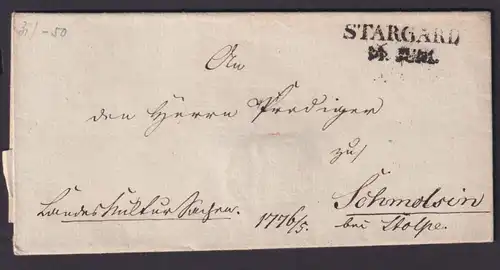 35/-50
STARGARD
JUNI.
An
den Herrn Prediger
zu
Schmolsin
bei Stolpe.
Landes Kultur Sachen.
1776/5.